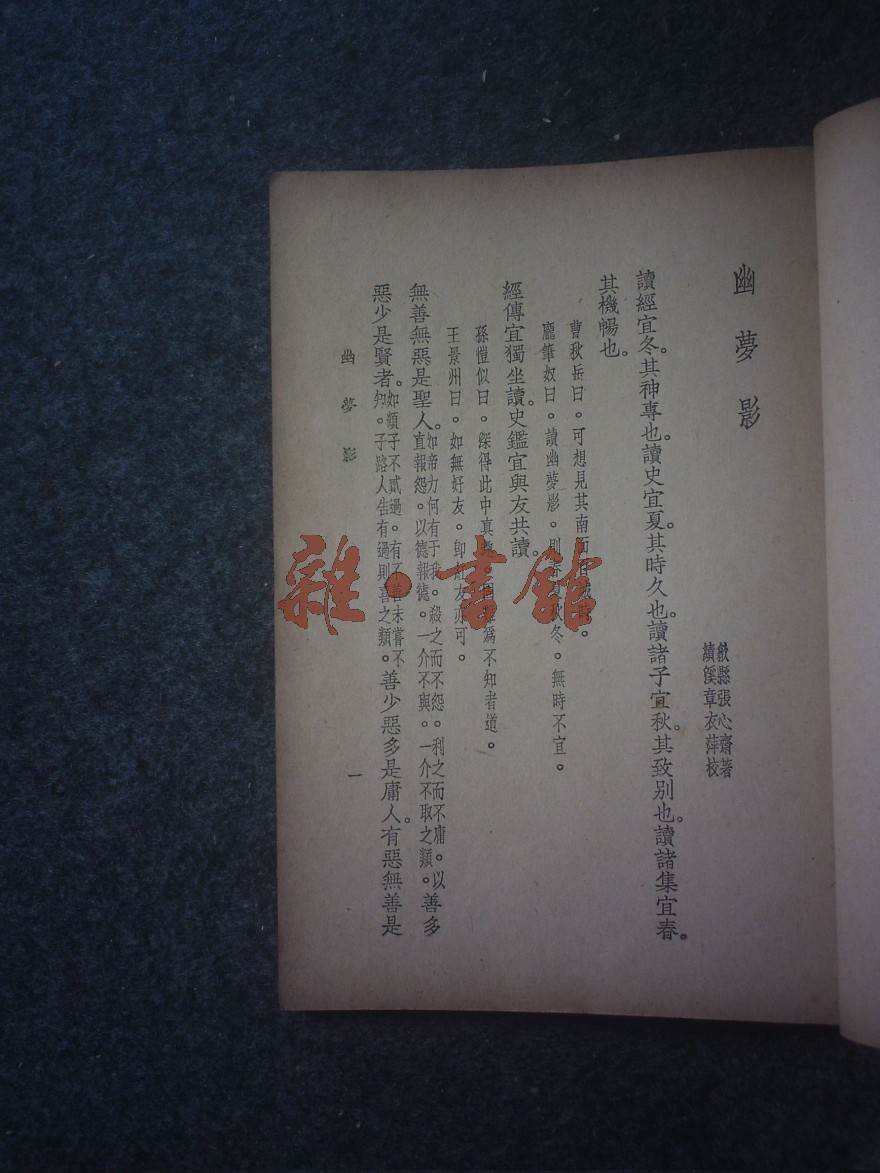 幽夢影
歙縣張心齋著
績溪章衣萍校
讀經宜冬。其神專也。讀史宜夏。其時久也。讀諸子宜秋。其致别也。讀諸集宜春。
其機暢也。
曹秋岳曰。可想見其南面百城時。
龐筆奴曰。讀幽夢影。則春夏秋冬。無時不宜。
經傳宜獨坐讀。史鑑宜與友共讀。
孫愷似曰。深得此中真 固難爲不知者道。
王景州曰。如無好友。卽紅友亦可。
無善無惡是聖人。如帝力何有于我。殺之而不怨。利之而不庸。以直報怨。以德報德。一介不與。一介不取之類。善多
惡少是賢者。如顏子不貳過。有不善未嘗不知。子路人告有過則喜之類。善少惡多是庸人。有惡無善是
幽夢影
一
雜·書館